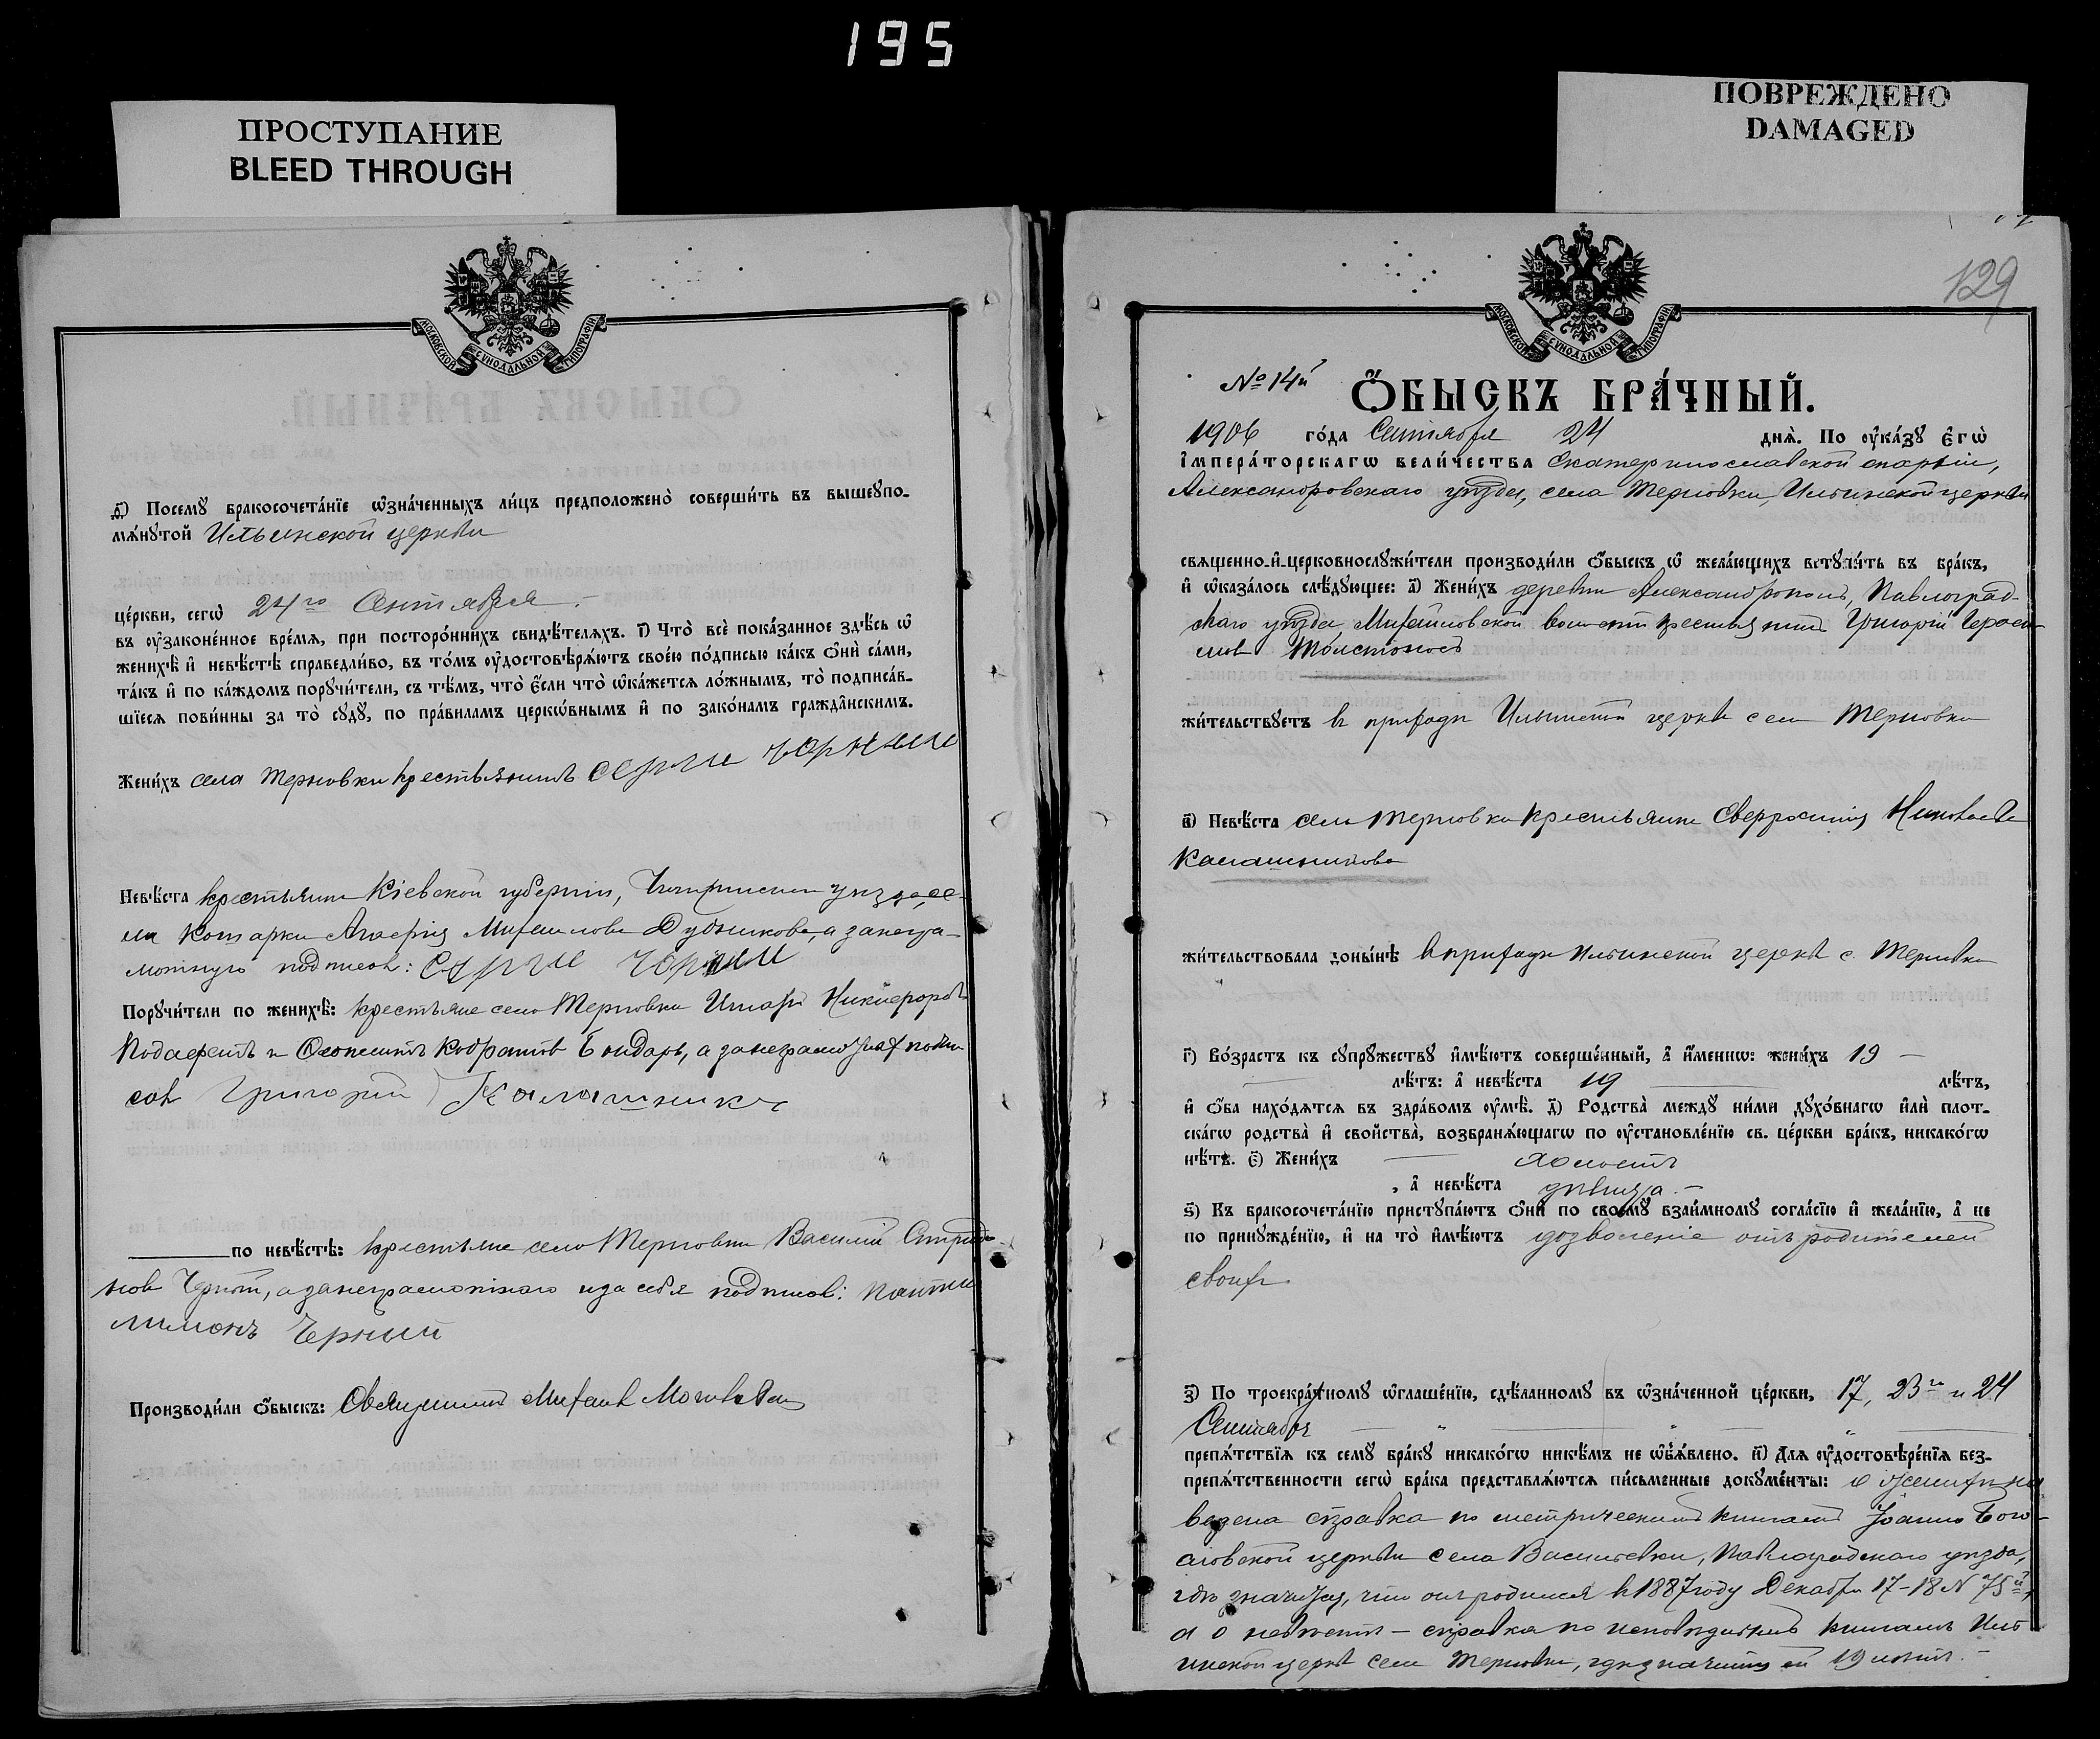 195
ПРОСТУПАНИЕ
BLEED THROUGH
ПОВРЕЖДЕНО
DAMAGED
МОСКОВСКОЙ СѴНОДАЛЬНОЙ ТИПОГРАФІИ
ѳ҃) Посемꙋ̀ бракосочета́нїе ѡ҆зна́ченныхъ ли́цъ предположено̀ соверши́ть въ вышеꙋпо-
мѧ́нꙋтой Ильинской церкви
це́ркви, сегѡ̀ 24го Сентября
въ ᲂу҆законе́нное вре́мѧ, при посторо́ннихъ свидѣ́телѧхъ. і҃) Что̀ всѐ пока́занное здѣ́сь ѡ҆
женихѣ̀ и҆ невѣ́стѣ справедли́во, въ то́мъ ᲂу҆достовѣрѧ́ютъ свое́ю по́дписью ка́къ ѻ҆нѝ са́ми,
та́къ и҆ по ка́ждомъ порꙋчи́тели, съ тѣ́мъ, что̀ є҆́сли что̀ ѡ҆ка́жетсѧ ло́жнымъ, то̀ подписа́в-
шїесѧ пови́нны за то̀ сꙋдꙋ̀, по пра́виламъ церкѡ́внымъ и҆ по зако́намъ гражда̂нскимъ.
Жени́хъ села Терновки крестьянинъ Сергии Чорныи
Невѣ́ста крестьянка Кіевской губерніи, уѣзда, се-
ла Агафія Михаилова Дубникова, а за негра-
мотную подписов: Сергии Чорныи
Порꙋчи́тели по женихѣ̀: крестьяне села Терновки Никифоровъ
и Бондарь, а за неграмотных подпи
сов Григорий Калашник
по невѣ́стѣ: крестьяне села Терновки Василий Спиридо-
нов Черный, а за неграмотного и за себя подписов: Панти
лимонъ Черный
Производи́ли ѻ҆́быскъ: Священникъ Михаилъ
129
№ 14й ѺБЫСКЪ БРА́ЧНЫЙ.
1906 го́да Сентября 24 днѧ̀. По ᲂу҆ка́зꙋ є҆гѡ̀
і҆мпера́торскагѡ вели́чества Екатеринославской епархіи,
Александровскаго уѣзда, села Терновки, Ильинской церкви
свѧщенно-и҆-церковнослꙋжи́тели производи́ли ѻ҆́быскъ ѡ҆ жела́ющихъ встꙋпи́ть въ бра́къ,
и҆ ѡ҆каза́лось слѣ́дꙋющее: а҃) Жени́хъ деревни Александрополь, Павлоград-
скаго уѣзда Михайловской волости крестьянинъ Григорій Гераси-
мов Толстоносъ
жи́тельствꙋетъ в приходѣ Ильинской церкви села Терновки
в҃) Невѣ́ста села Терновки крестьянка Евфросинія Николаева
Калашникова
жи́тельствовала доны́нѣ в приходѣ Ильинской церкви с. Терновки
г҃) Во́зрастъ къ сꙋпрꙋ́жествꙋ и҆мѣ́ютъ соверше́нный, а҆ и҆́меннѡ: жени́хъ 19
лѣ́тъ: а҆ невѣ́ста 19 лѣ́тъ,
и҆ ѻ҆́ба нахо́дѧтсѧ въ здра́вомъ ᲂу҆мѣ̀. д҃) Родства̀ междꙋ̀ ни́ми дꙋхо́внагѡ и҆лѝ плот-
ска́гѡ родства̀ и҆ свойства̀, возбранѧ́ющагѡ по ᲂу҆становле́нїю св. це́ркви бра́къ, никако́гѡ
нѣ́тъ. є҃) Жени́хъ холостъ
, а҆ невѣ́ста дѣвица.
ѕ҃) Къ бракосочета́нїю пристꙋпа́ютъ ѻ҆нѝ по своемꙋ̀ взаи́мномꙋ согла́сїю и҆ жела́нїю, а҆ не
по принꙋжде́нїю, и҆ на то̀ и҆мѣ́ютъ дозволеніе отъ родителей
своихъ
з҃) По троекра́тномꙋ ѡ҆глаше́нїю, сдѣ́ланномꙋ въ ѡ҆зна́ченной це́ркви, 17, 23го и 24
Сентября
препѧ́тствїѧ къ семꙋ̀ бра́кꙋ никако́гѡ никѣ́мъ не ѡ҆б̾ѧ́влено. и҃) Длѧ ᲂу҆достовѣре́нїѧ без-
препѧ́тственности сегѡ̀ бра́ка представлѧ́ютсѧ пи́сьменные докꙋме́нты: о женихѣ на
ведена справка по метрическимъ книгамъ Іоанно Бого-
словской церкви села Васильевки, Павлоградскаго уѣзда,
гдѣ значится, что онъ родился в 1887 году Декабря 17-18 N 75й,
а о невѣстѣ — справка по исповѣднымъ книгамъ Иль
инской церкви села Терновки, гдѣ значится ей 19 лѣтъ.